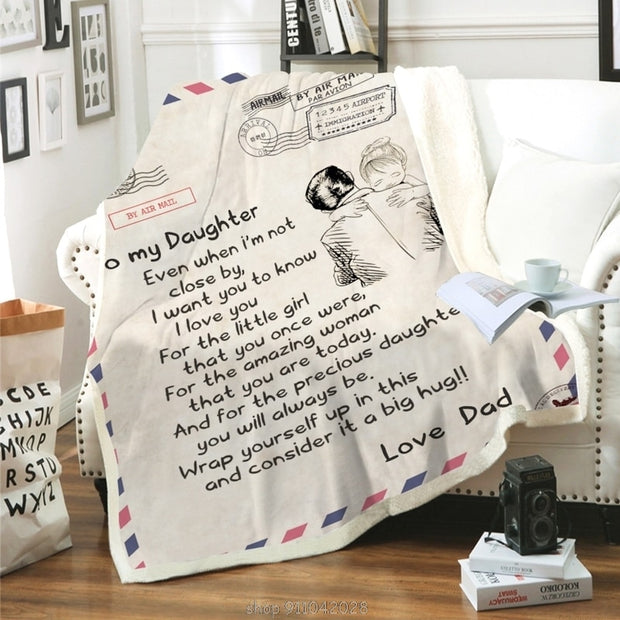 CENTURY
AIRMAIL
BY AIR MAIL
PAR AVION
12345 AIRPORT
IMMIGRATION
BY AIR MAIL
o my Daughter
Even when i'm not
close by,
I want you to know
I love you
For the little girl
that you once were,
For the amazing woman
that you are today.
And for the precious daughte
you will always be.
Wrap yourself up in this
and consider it a big hug!!
Love Dad
CDE
HIJK
MNOP
RSTU
WXYZ
KOŁODKO
WĘDRUJĄCY
ŚWIAT
shop 911042028